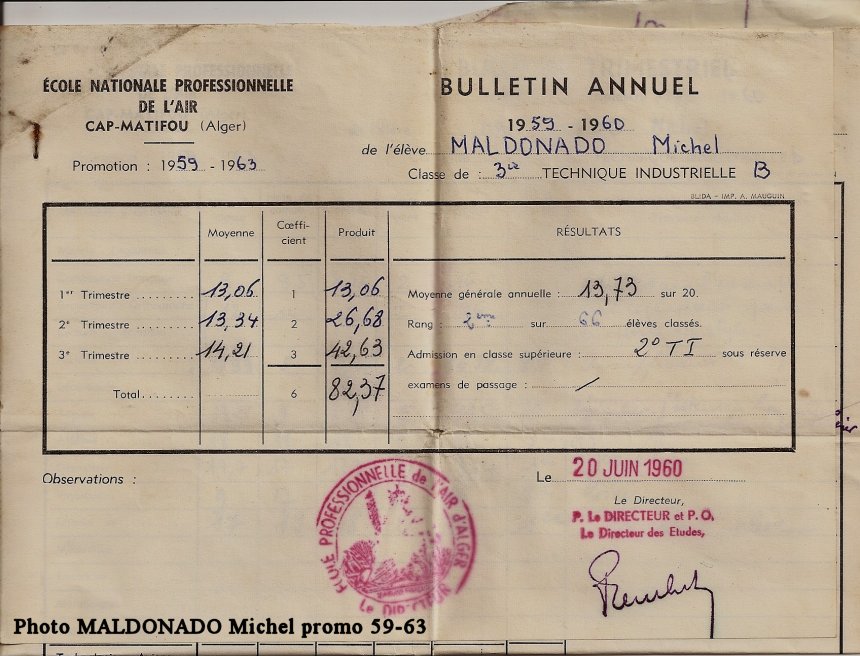 ÉCOLE NATIONALE PROFESSIONNELLE
DE L'AIR
CAP-MATIFOU (Alger)
Promotion : 1959 - 1963
BULLETIN ANNUEL
1959 - 1960
de l'élève MALDONADO Michel
Classe de : 3e TECHNIQUE INDUSTRIELLE B
BLIDA - IMP. A. MAUGUIN
Moyenne Cœffi-cient Produit RÉSULTATS
1er Trimestre 13,06 1 13,06
2e Trimestre 13,34 2 26,68
3e Trimestre 14,21 3 42,63
Total 6 82,37
Moyenne générale annuelle : 13,73 sur 20.
Rang : 2ème sur 66 élèves classés.
Admission en classe supérieure : 2° TI sous réserve
examens de passage : /
Observations :
Le 20 JUIN 1960
Le Directeur,
P. Le DIRECTEUR et P. O.
Le Directeur des Etudes,
PROFESSIONNELLE de L'AIR d'ALGER
Le DIRECTEUR
Photo MALDONADO Michel promo 59-63